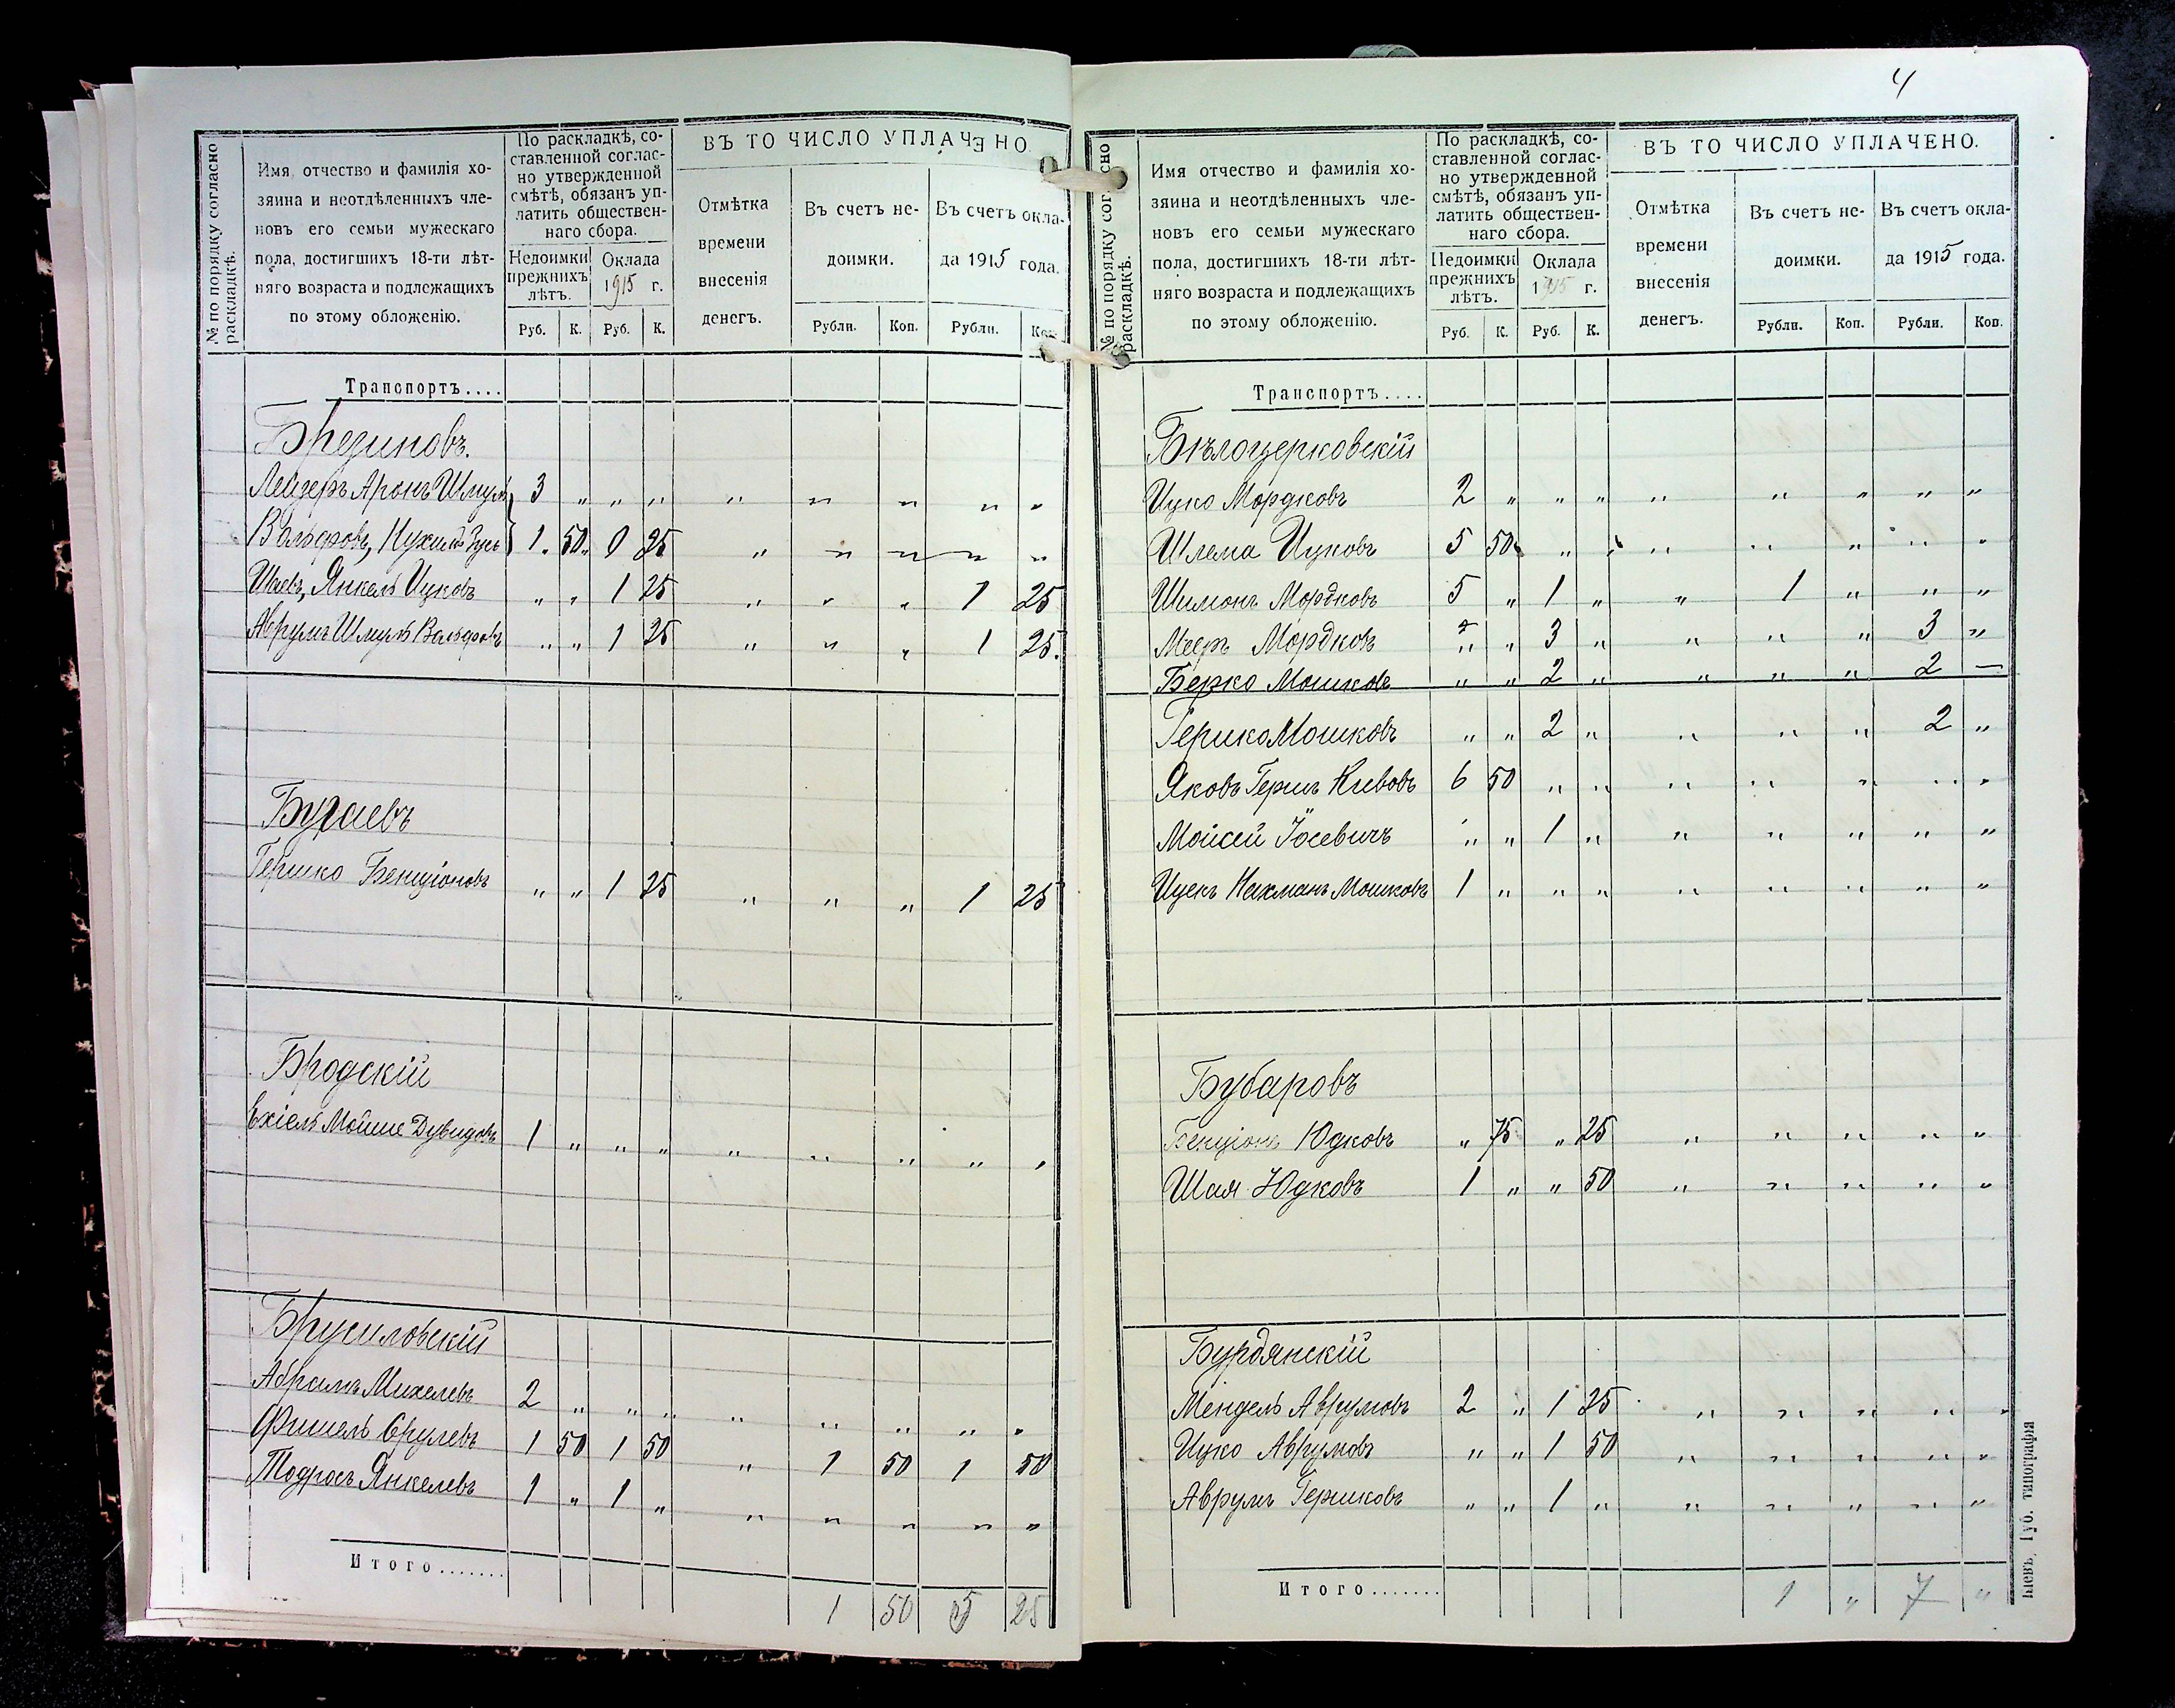 4
№ по порядку согласно раскладкѣ.
Имя, отчество и фамилія хо-
зяина и неотдѣленныхъ чле-
новъ его семьи мужескаго
пола, достигшихъ 18-ти лѣт-
няго возраста и подлежащихъ
по этому обложенію.
По раскладкѣ, со-
ставленной соглас-
но утвержденной
смѣтѣ, обязанъ уп-
латить обществен-
наго сбора.
Недоимки прежнихъ лѣтъ.
Оклада 1915 г.
Руб. К. Руб. К.
ВЪ ТО ЧИСЛО УПЛАЧЕНО.
Отмѣтка времени внесенія денегъ.
Въ счетъ не-
доимки.
Въ счетъ окла-
да 1915 года.
Рубли. Коп. Рубли. Коп.
Транспортъ....
Брединовъ.
Лейзеръ Аронъ Шмуль 3 " " " " " " " "
Вольфовъ, 1 " 50 " 0 25 " " " " "
Янкель Ицковъ " " 1 25 " " " 1 25
Аврумъ Шмуль Вольфовъ " " 1 25 " " " 1 25.
Бугаевъ
Гершко Бенціоновъ " " 1 25 " " " 1 25
Бродскій
Ехіель Мойше Дувидовъ 1 " " " " " " " "
Брусиловскій
Абрамъ Михелевъ 2 " " " " " " " "
Фишель Срулевъ 1 50 1 50 " 1 50 1 50
Тодросъ Янкелевъ 1 " 1 " " " " " "
Итого.......
1 50 5 25
№ по порядку согласно раскладкѣ.
Имя отчество и фамилія хо-
зяина и неотдѣленныхъ чле-
новъ его семьи мужескаго
пола, достигшихъ 18-ти лѣт-
няго возраста и подлежащихъ
по этому обложенію.
По раскладкѣ, со-
ставленной соглас-
но утвержденной
смѣтѣ, обязанъ уп-
латить обществен-
наго сбора.
Недоимки прежнихъ лѣтъ.
Оклада 1915 г.
Руб. К. Руб. К.
ВЪ ТО ЧИСЛО УПЛАЧЕНО.
Отмѣтка времени внесенія денегъ.
Въ счетъ не-
доимки.
Въ счетъ окла-
да 1915 года.
Рубли. Коп. Рубли. Коп.
Транспортъ....
Бѣлоцерковскій
Ицко Мордковъ 2 " " " " " " " "
Шлема Ицковъ 5 50 " " " " " " "
Шимонъ Мордковъ 5 " 1 " " 1 " " "
Мееръ Мордковъ " " 3 " " " " 3 "
Берко Мошковъ " " 2 " " " " 2 —
Гершко Мошковъ " " 2 " " " " 2 "
Яковъ Гершъ 6 50 " " " " " " "
Мойсей Іосевичъ " " 1 " " " " " "
Ицекъ Нахманъ Мошковъ 1 " " " " " " " "
Бубаровъ
Бенціонъ Юдковъ " 75 " 25 " " " " "
Шая Юдковъ 1 " " 50 " " " " "
Бурдянскій
Мендель Аврумовъ 2 " 1 25 " " " " "
Ицко Аврумовъ " " 1 50 " " " " "
Аврумъ Гершковъ " " 1 " " " " " "
Итого.......
1 " 7 "
Кіевъ, Губ. типографія